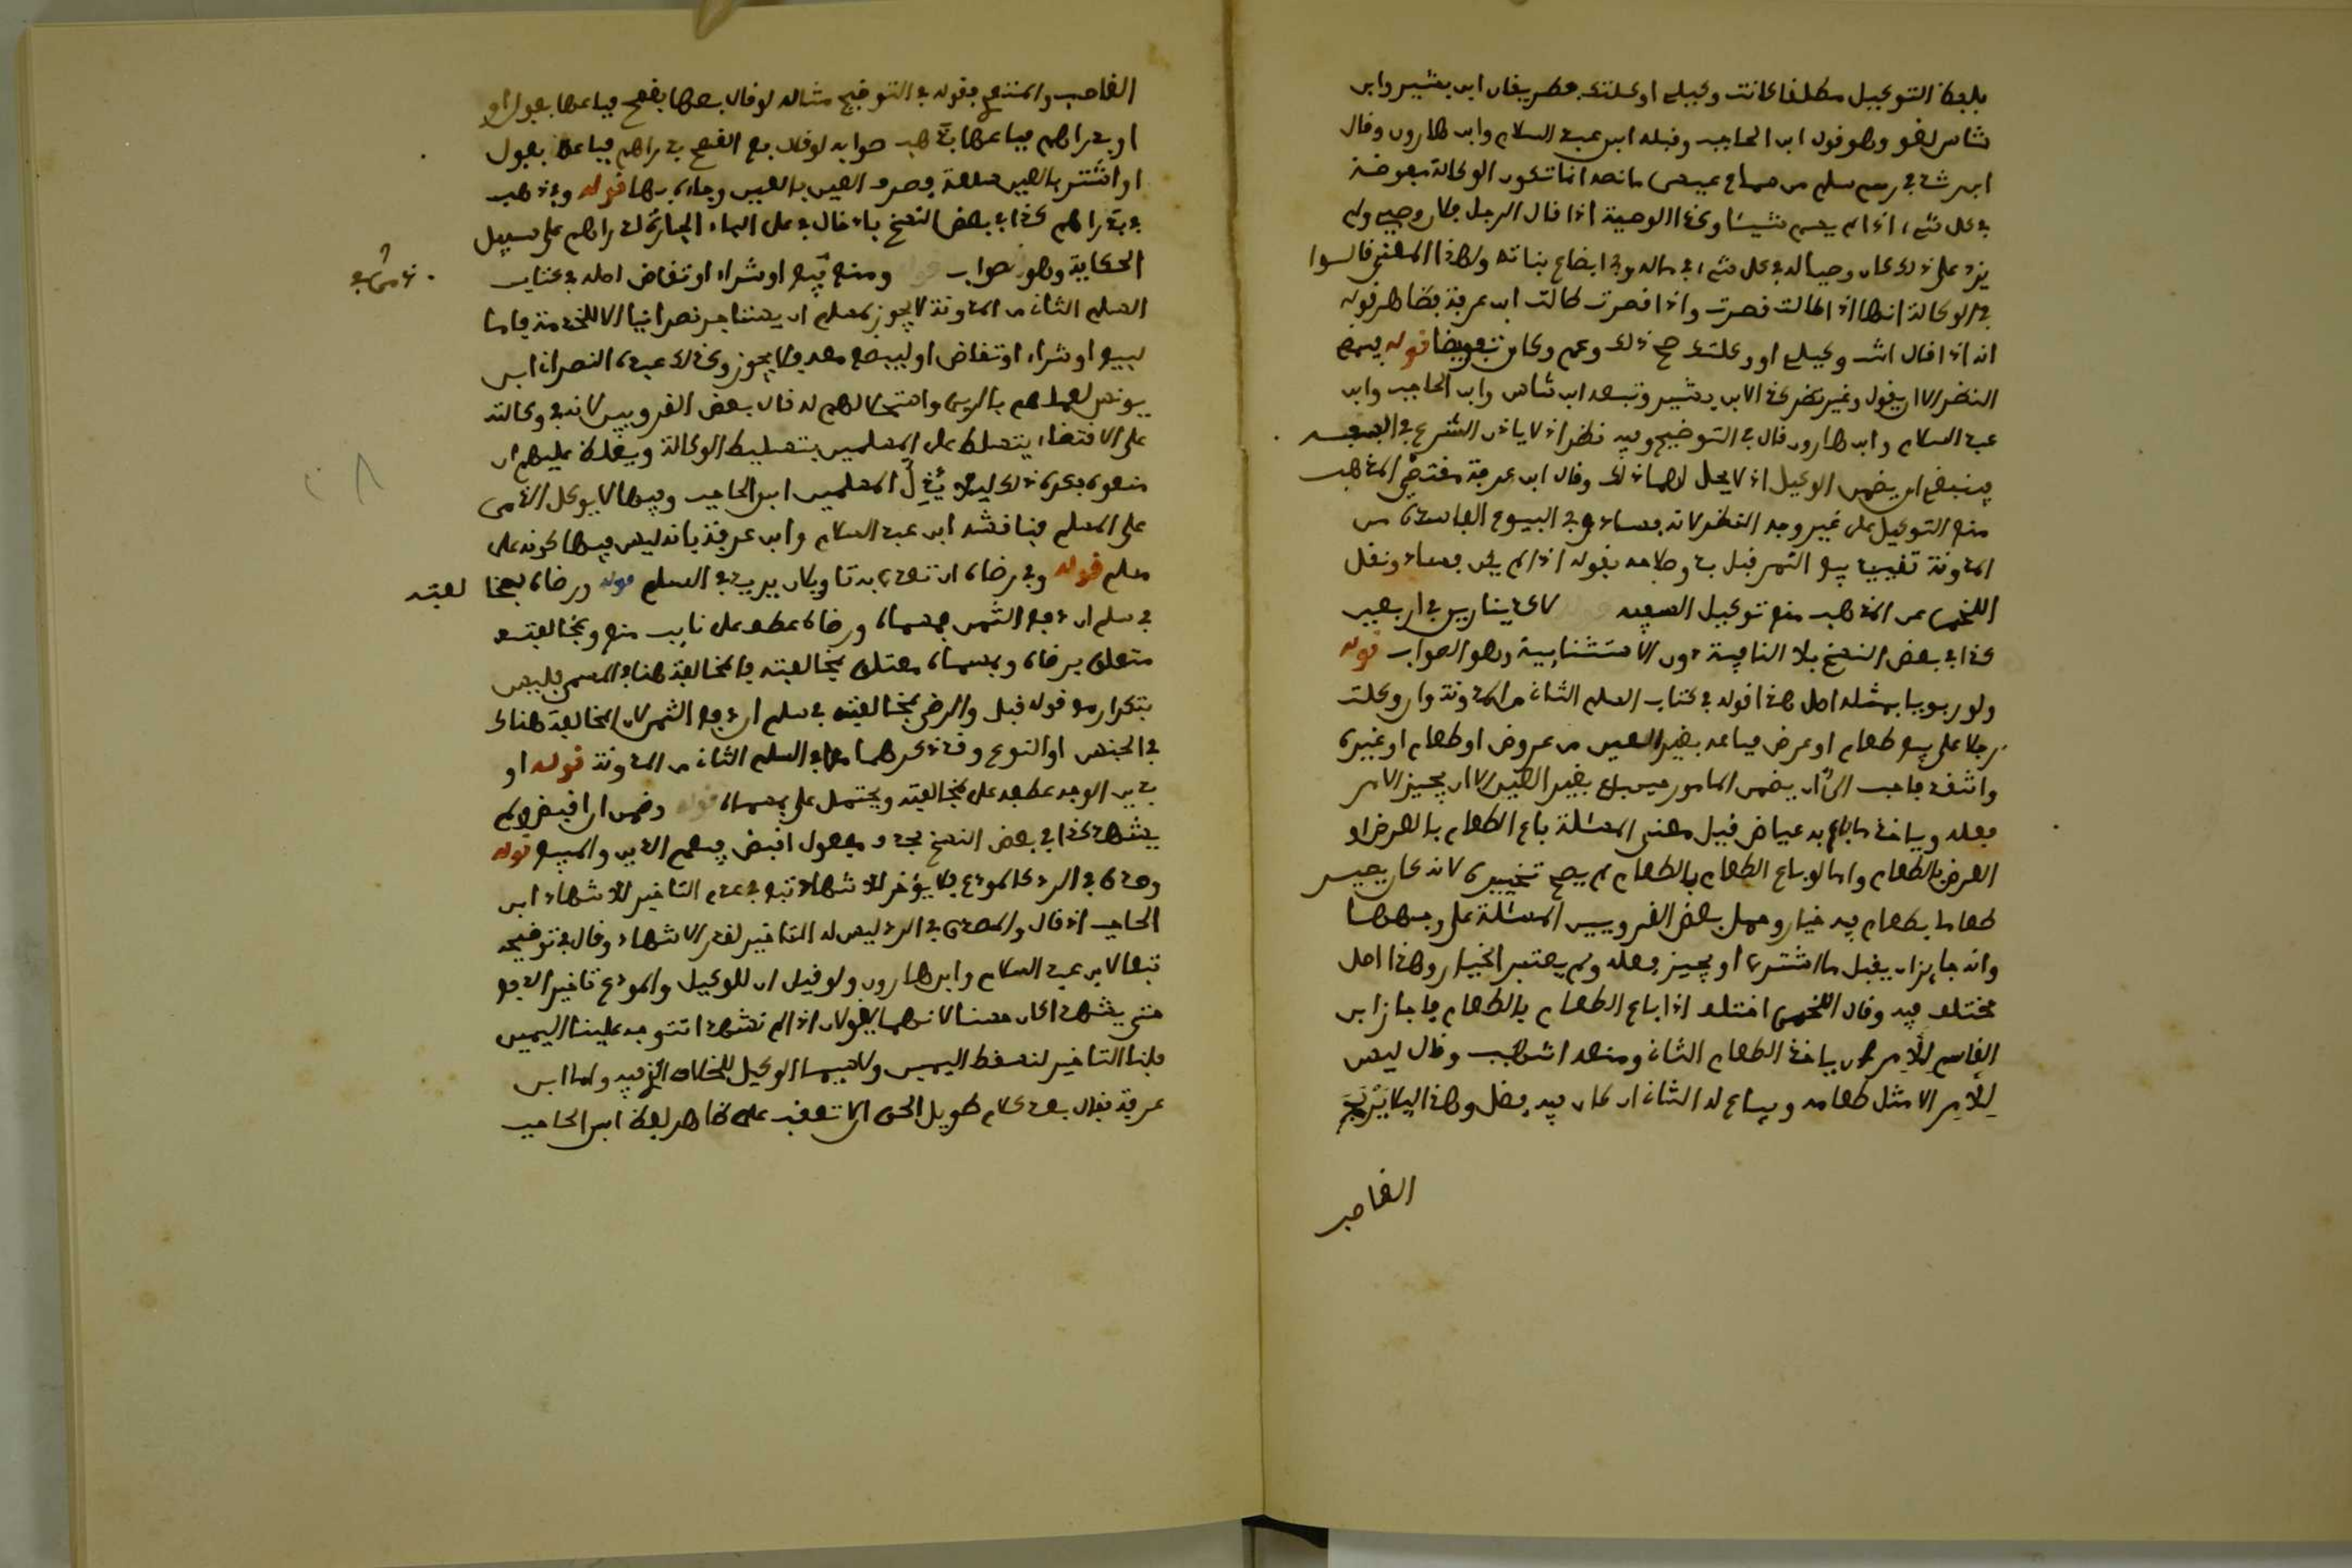 بلفظ التوكيل مطلقا كانت وكيلي او وكلتك فطريقان ابن بشير وابن
شاس لغو وهو قول ابن الحاجب وقبله ابن عبد السلام وابن هارون وقال
ابن رشد في رسم سلم من سماع عيسى ما نصه انما تكون الوكالة مفوضة
في كل شيء اذا لم يسم شيئا وكذا الوصية اذا قال الرجل فلان وصيي ولم
يزد على ذلك كان وصيا له في كل شيء في ماله وفي ابضاع بناته وبهذا المعنى قالوا
في الوكالة انها اذا طالت قصرت واذا قصرت طالت ابن عرفة فظاهر قوله
انه اذا قال انت وكيلي او وكلتك صح ذلك وعم وكان تفويضا قوله فيمضي
النظر الا ان يقول وغير نظر كذا لابن بشير وتبعه ابن شاس وابن الحاجب وابن
عبد السلام وابن هارون قال في التوضيح وفيه نظر اذ لا ياذن الشرع في السفه
فينبغي ان يضمن الوكيل اذ لا يحل لهما ذلك وقال ابن عرفة مقتضى المذهب
منع التوكيل على غير وجه النظر لانه فساد وفي البيوع الفاسدة من
المدونة تقييد بيع الثمر قبل بدو صلاحه بقوله اذا لم يكن فسادا ونقل
اللخمي عن المذهب منع توكيل السفيه لا كدينارين في اربعين
كذا في بعض النسخ بلا النافية دون الا الاستثنائية وهو الصواب قوله
ولو ربويا بمثله اصل هذا قوله في كتاب السلم الثاني من المدونة وان وكلت
رجلا على بيع طعام او عرض فباعه بغير العين من عروض او طعام او غيره
وانتقد فاحب الي ان يضمن المامور حين باع بغير العين الا ان يجيز الامر
فعله وياخذ ما باع به عياض قيل معنى المسئلة باع الطعام بالعرض او
العرض بالطعام واما لو باع الطعام بالطعام لم يصح تخييره لانه كان يصير
طعاما بطعام فيه خيار وحمل بعض القرويين المسئلة على وجهها
وانه جائز ان يقبل ما اشترى او يجيز فعله ولم يعتبر الخيار وهذا اصل
مختلف فيه وقال اللخمي اختلف اذا باع الطعام بالطعام فاجاز ابن
القاسم للامر ان ياخذ الطعام الثاني ومنعه اشهب وقال ليس
للامر الا مثل طعامه ويباع له الثاني ان كان فيه فضل وهذا ليلا يربح
الغاصب
الغاصب والمتعدي فقوله في التوضيح مثاله لو قال بعها بقمح فباعها بفول او
او بدراهم فباعها بذهب صوابه لو قال بع القمح بدراهم فباعها بفول
او اشتر بالعين سلعة فصرف العين بالعين وجاء بها قوله وبذهب
في بدراهم كذا في بعض النسخ بادخال في على الباء الجارة لدراهم على سبيل
الحكاية وهو صواب ومنع بيع او شراء او تقاض اصله في كتاب
السلم الثاني من المدونة لا يجوز لمسلم ان يستاجر نصرانيا الا للخدمة فاما
لبيع او شراء او تقاض او ليبضع معه فلا يجوز وكذلك عبده النصراني ابن
يونس لعملهم بالربى واستحلالهم له قال بعض القرويين لانه في وكالته
على الاقتضاء يتسلط على المسلمين بتسليط الوكالة ويغلظ عليهم ان
منعوه فكره ذلك ليلا يذل المسلمين ابن الحاجب وفيها لا يوكل الذمي
على المسلم فناقشه ابن عبد السلام وابن عرفة بانه ليس فيها كونه على
مسلم قوله وفي رضاه ان تعدى به تاويلان يريد في السلم قوله ورضاه بمخالفته
في سلم ان دفع الثمن بمسماه ورضاه عطف على نايب منع وبمخالفته
متعلق برضاه وبمسماه متعلق بمخالفته فالمخالفة هنا في المسمى فليس
بتكرار مع قوله قبل والرضى بمخالفته في سلم ان دفع الثمن لان المخالفة هناك
في الجنس او النوع وقد ذكرهما معا في السلم الثاني من المدونة قوله او
بدين الوجه عطفه على بمخالفته ويحتمل على بمسماه قوله وضمن ان اقبض ولم
يشهد كذا في بعض النسخ بحذف مفعول اقبض فيعم الدين والمبيع قوله
وصدق في الرد كالمودع فلا يؤخر للاشهاد تبع في عدم التاخير للاشهاد ابن
الحاجب اذ قال والمصدق في الرد ليس له التاخير لعذر الاشهاد وقال في توضيحه
تبعا لابن عبد السلام وابن هارون ولو قيل ان للوكيل والمودع تاخير الدفع
حتى يشهد لكان حسنا لانهما يقولان اذا لم نشهد تتوجه علينا اليمين
فلنا التاخير لتسقط اليمين ولاسيما الوكيل للخلاف الذي فيه واما ابن
عرفة فقال بعد كلام طويل الحق ان لا تعقب على ظاهر لفظ ابن الحاجب